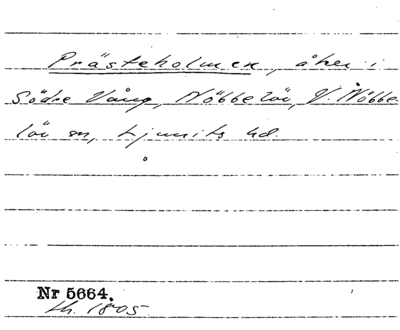 Prästeholmen, åker i
Södre Vång, Nöbbelöv, V. Nöbbe
löv sn, Ljunits hd.
Nr 5664.
Lh. 1805